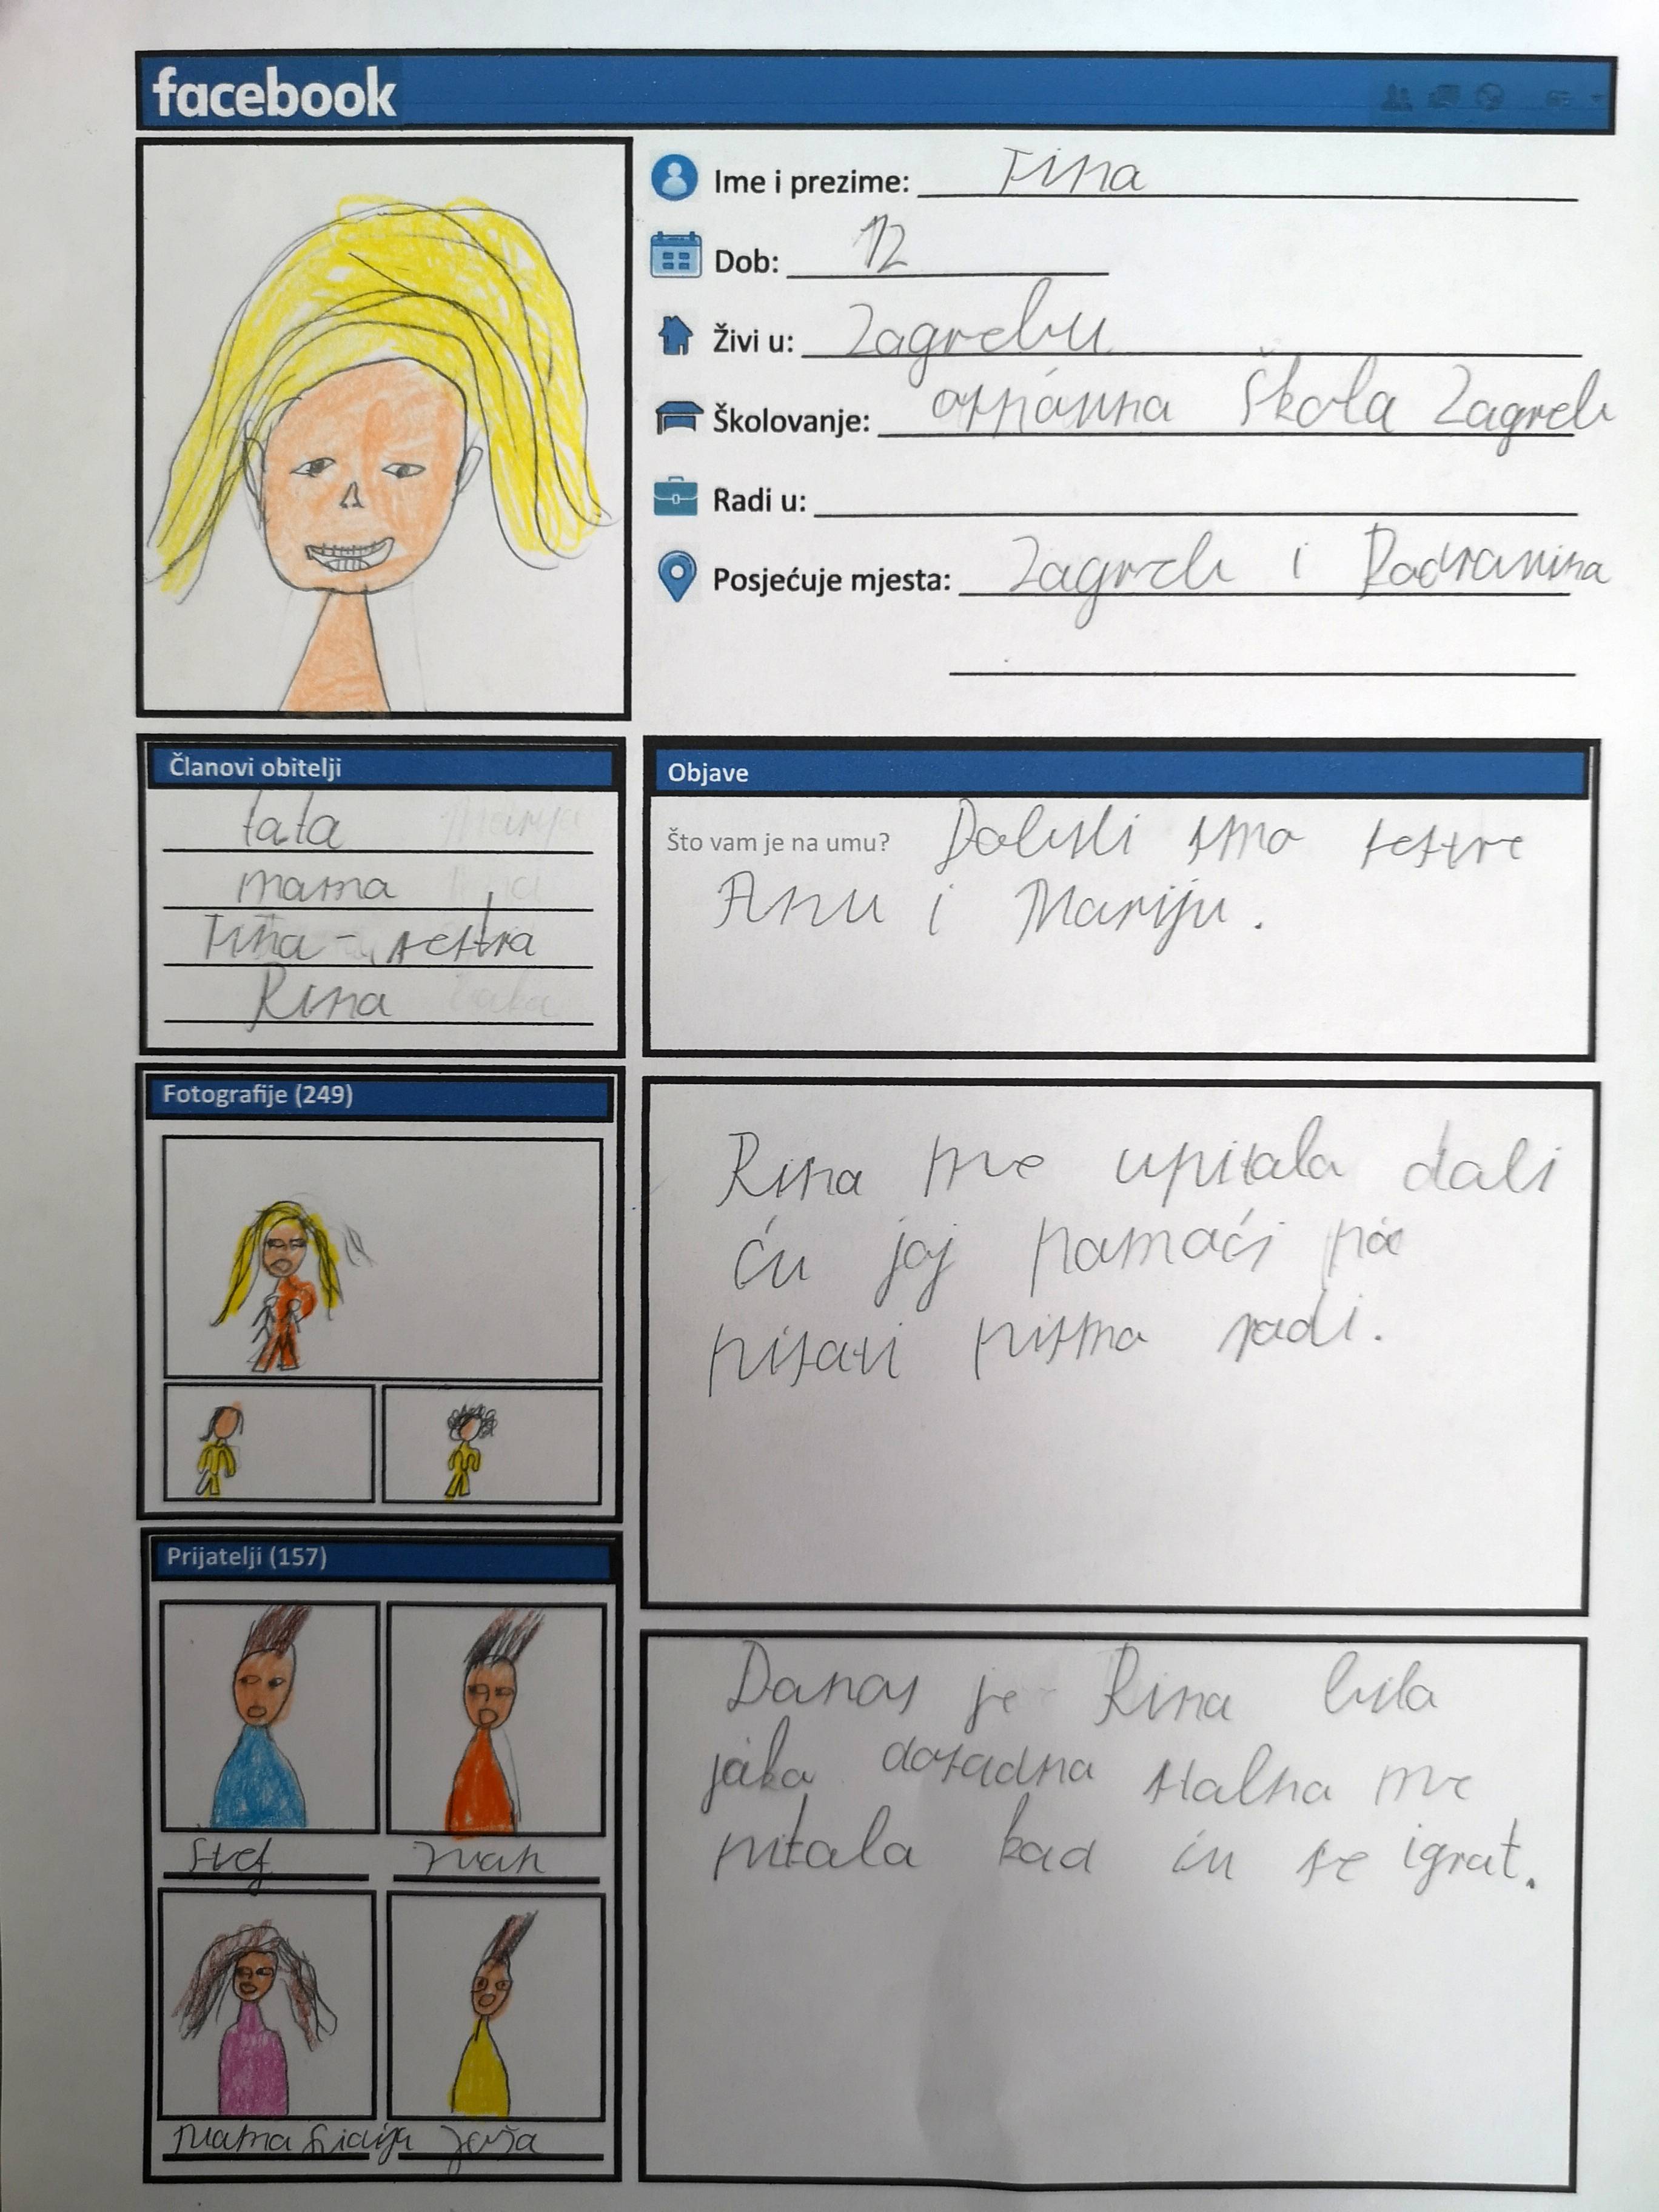 facebook
Ime i prezime: Tina
Dob: 12
Živi u: Zagrebu
Školovanje: osnovna škola Zagreb
Radi u:
Posjećuje mjesta: Zagreb i
Članovi obitelji
tata
mama
Tina - sestra
Rina
Objave
Što vam je na umu? Dobili smo sestre
Anu i Mariju.
Fotografije (249)
Rina me upitala dali
ću joj pomoći
pisati pisma
Prijatelji (157)
Stef Ivan
mama Jaša
Danas je Rina bila
jako dosadna stalno me
pitala kad ću se igrat.